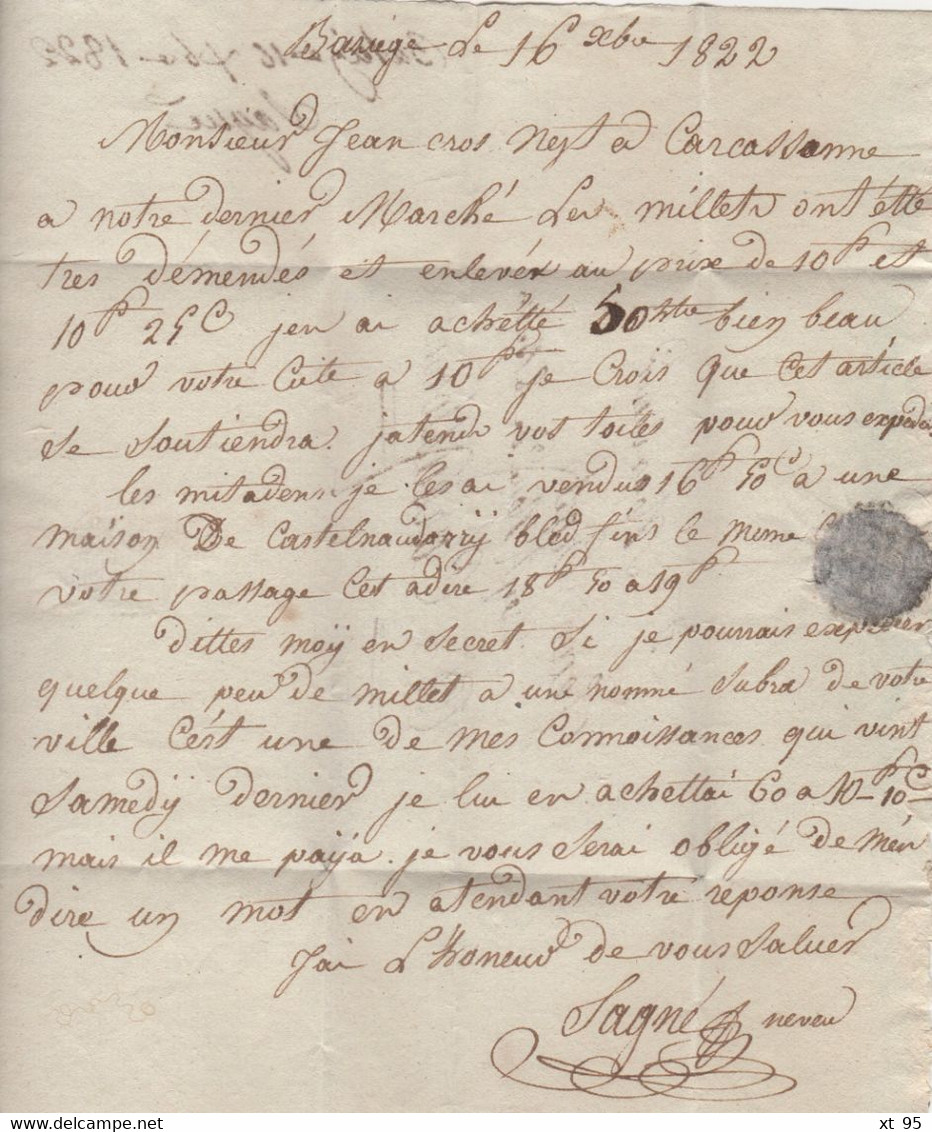 Baziége Le 16 xbre 1822
Monsieur Jean cros Negt a Carcassonne
a notre dernier Marché Les millets ont étté
tres démendés et enlevés au prix de 10f et
10f 25c jen ai achétté 50 htre bien beau
pour votre Cute a 10f je Crois que Cet article
se soutiendra. jatends vos toiles pour vous expedier
les mitadens je les ai vendus 16f 50c a une
maison De Castelnaudarÿ bled fins le meme
votre passage Cet adire 18f 50 a 19f
dittes moÿ en secret si je pourrais expedier
quelque peu de millet a une nommé Subra de votre
ville C'est une de mes Connoissances qui vint
Samedÿ dernier je lui en achettai 60 a 10f 10c
mais il me païÿa. je vous serai obligé de m'en
dire un mot en atendant votre reponse
J'ai L'honeur de vous saluer
Sagné neveu
xt 95